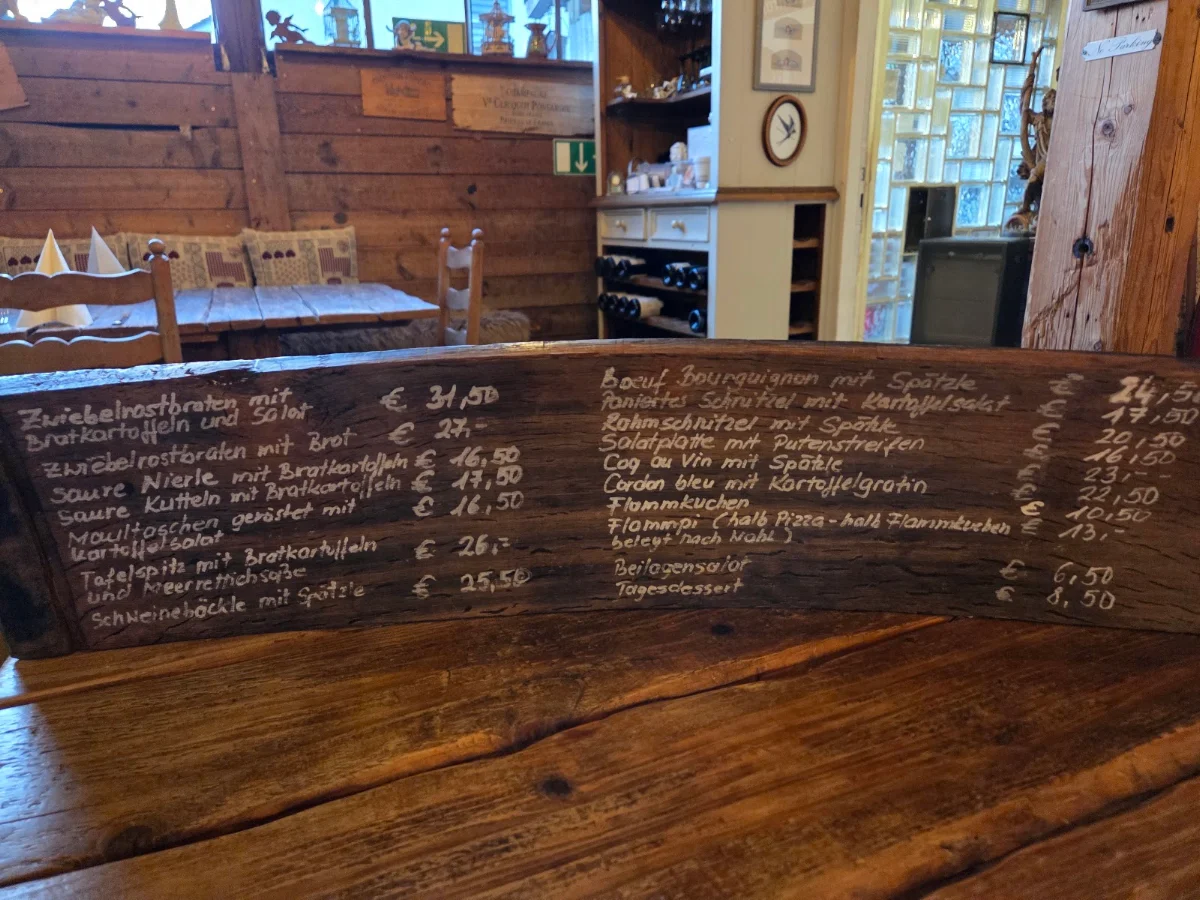 CHAMPAGNE
Vve CLICQUOT PONSARDIN
No Parking
Zwiebelrostbraten mit
Bratkartoffeln und Salat € 31,50
Zwiebelrostbraten mit Brot € 27,-
Saure Nierle mit Bratkartoffeln € 16,50
Saure Kutteln mit Bratkartoffeln € 17,50
Maultaschen geröstet mit
Kartoffelsalat € 16,50
Tafelspitz mit Bratkartoffeln
und Meerrettichsoße € 26,-
Schweinebäckle mit Spätzle € 25,50
Boeuf Bourguignon mit Spätzle € 24,50
Paniertes Schnitzel mit Kartoffelsalat € 17,50
Rahmschnitzel mit Spätzle € 20,50
Salatplatte mit Putenstreifen € 16,50
Coq au Vin mit Spätzle € 23,-
Cordon bleu mit Kartoffelgratin € 22,50
Flammkuchen € 10,50
Flammpi (halb Pizza - halb Flammkuchen € 13,-
belegt nach Wahl)
Beilagensalat € 6,50
Tagesdessert € 8,50